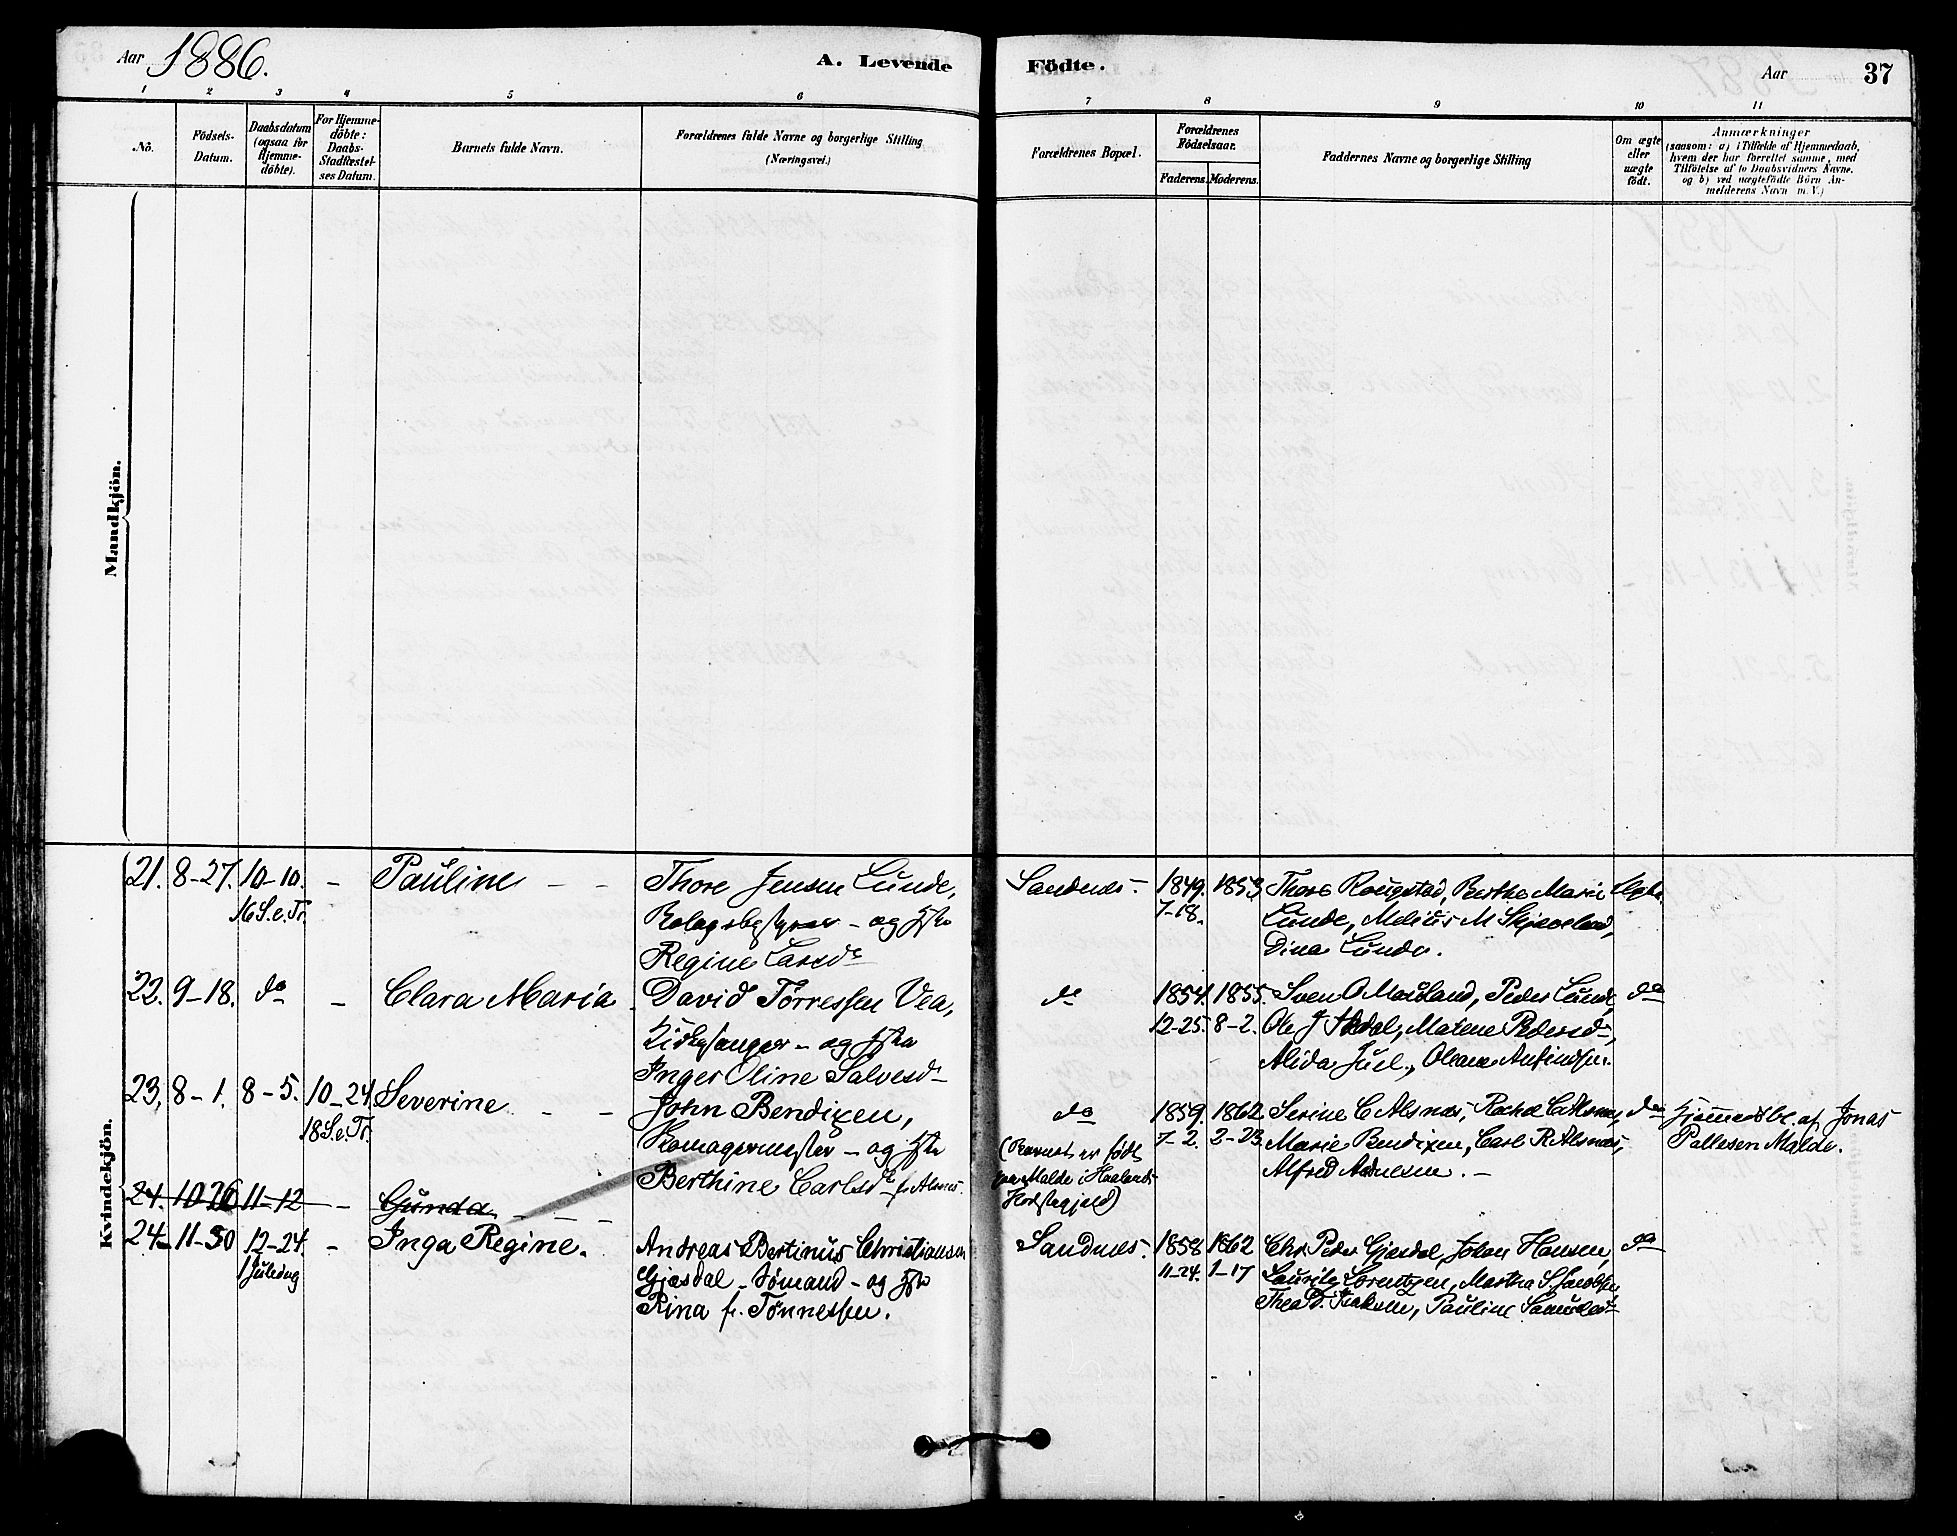 Aar 1886.
A. Levende
Födte.
Aar
37
1 2 3 4 5 6
7 8 9 10 11
No.
Födsels-
Datum.
Daabsdatum
(ogsaa for
Hjemme-
döbte).
For Hjemme-
döbte:
Daabs-
Stadfæstel-
ses Datum.
Barnets fulde Navn.
Forældrenes fulde Navne og borgerlige Stilling
(Næringsvei.)
Forældrenes Bopæl.
Forældrenes
Födselsaar.
Faderens. Moderens.
Faddernes Navne og borgerlige Stilling
Om ægte
eller
uægte
födt.
Anmærkninger
(saasom: a) i Tilfælde af Hjemmedaab,
hvem der har forrettet samme, med
Tilföielse af to Daabsvidners Navne.
og b) ved uægtefödte Börn An-
melderens Navn m. V.)
Mandkjön.
Kvindekjön.
21. 8-27. 10-10. - Pauline - -
16 S.e.Tr.
Thore Jensen Lunde,
- og Hstr
Regine Larsd.
Sandnes.
1849. 1853.
7-18.
Thore Rougstad, Berthe Marie
Lunde, Melius M Skjæveland,
Dina Lunde.
Ægte.
22. 9-18. do - Clara Maria
David Törressen Vea,
Kirkesanger - og Hstr
Inger Oline Salvesd.
do
1854. 1855.
12-25. 8-2.
Sven O Mauland, Peder Lunde,
Ole J Matene Pedersd.,
Alida Juel., Oleane
do
23. 8-1. 8-5. 10-24. Severine - -
18 S.e.Tr.
John Bendixen,
- og Hstr
Berthine Carlsd. f. Alsnes.
do
(Barnet er födt
paa Malde i Haalands
Præstegjeld)
1859. 1862.
7-2. 2-23.
Serine C Alsnes, Rachel C Alsnes,
Marie Bendixen, Carl R Alsnes,
Alfred -
do
Hjemmedbt. af Jonas
Pallesen Malde.
24. 10-26 11-12 - Gunda - - -
24. 11-30 12-24. - Inga Regine.
1 Juledag
Andreas Bertinus Christiansen
Gjesdal - Sömand - og Hstr
Rina f. Tönnessen.
Sandnes.
1858 1862
11-24. 1-17
Chr. Peder Gjesdal, Johan Hansen,
Lauritz Lorentzen, Martha S. Jacobsen,
Thea D. Pauline Samuelsd.
do